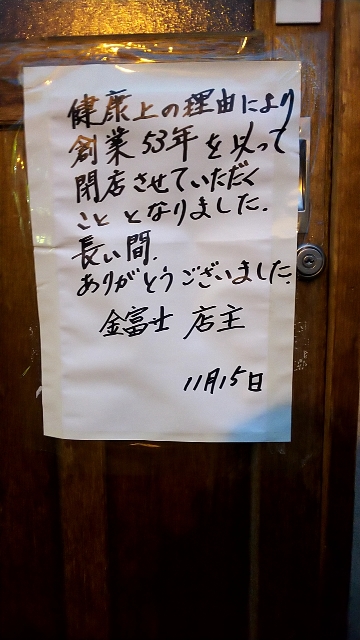 健康上の理由により
創業53年を以って
閉店させていただく
こととなりました.
長い間.
ありがとうございました.
金富士 店主
11月15日